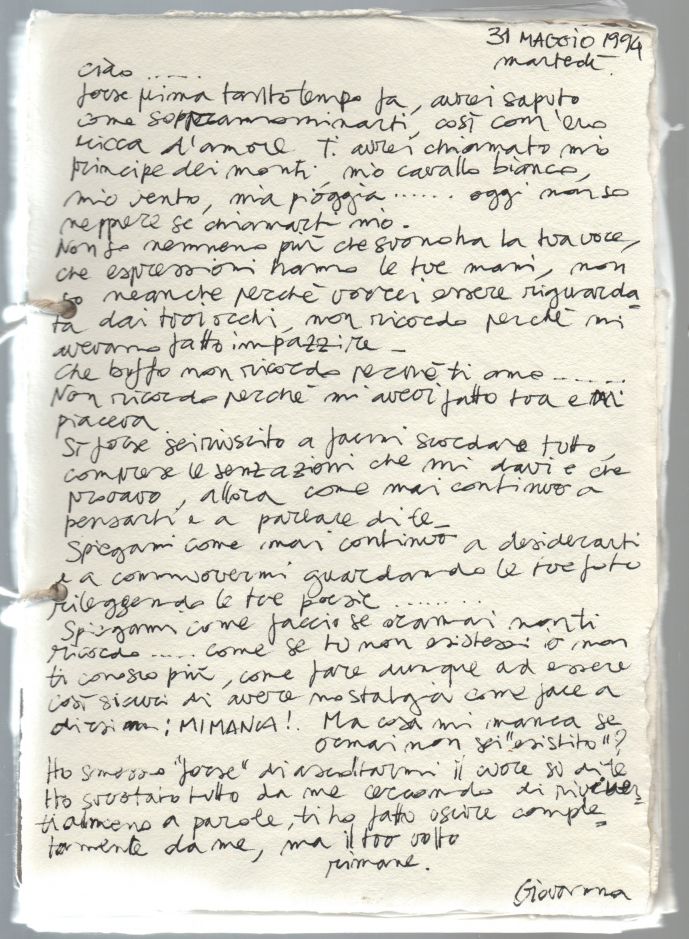 31 MAGGIO 1994
martedì
ciao ......
forse prima tanto tempo fa, avrei saputo
come soprannominarti, così com'ero
ricca d'amore Ti avrei chiamato mio
principe dei monti, mio cavallo bianco,
mio vento, mia pioggia ...... oggi non so
neppere se chiamarti mio.
Non so nemmeno più che suono ha la tua voce,
che espressioni hanno le tue mani, non
so neanche perchè vorrei essere riguarda-
ta dai tuoi occhi, non ricordo perchè mi
avevano fatto impazzire_
Che buffo non ricordo perchè ti amo ........
Non ricordo perchè mi averi fatto tua e mi
piaceva
Si forse sei riuscito a farmi scordare tutto,
comprese le senzazioni che mi davi e che
provavo, allora come mai continuo a
pensarti e a parlare di te_
Spiegami come mai continuo a desiderarti
e a commuovermi guardando le tue foto
rileggendo le tue poesie ..........
Spiegami come faccio se oramai non ti
ricordo ...... come se tu non esistessi o non
ti conosco più, come fare dunque ad essere
così sicuri di avere nostalgia come face a
dirsi : MI MANCA!. Ma cosa mi manca se
ormai non sei "esistito"?
Ho smesso "forse" di ascoltarmi il cuore su di te
Ho svuotato tutto da me cercando di river-
ti almeno a parole, ti ho fatto uscire comple-
tamente da me, ma il tuo volto
rimane.
Giovanna